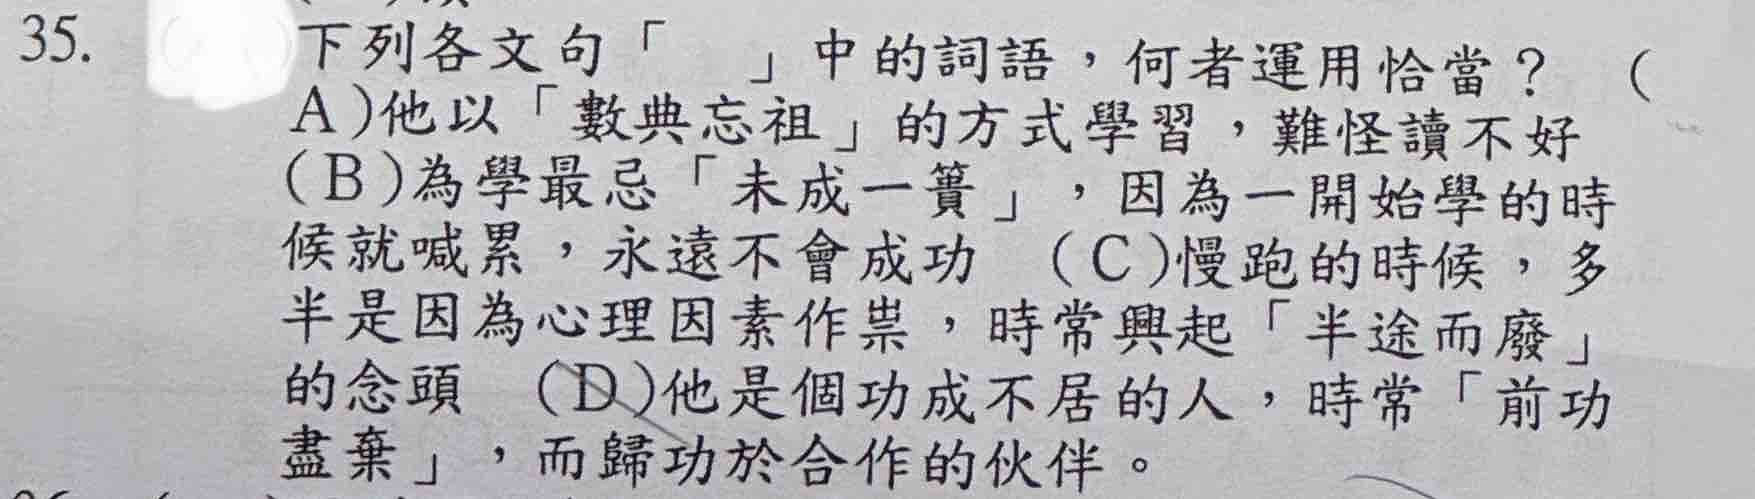 35. 下列各文句「　　」中的詞語，何者運用恰當？（
A)他以「數典忘祖」的方式學習，難怪讀不好
(B)為學最忌「未成一簣」，因為一開始學的時
候就喊累，永遠不會成功 (C)慢跑的時候，多
半是因為心理因素作祟，時常興起「半途而廢」
的念頭 (D)他是個功成不居的人，時常「前功
盡棄」，而歸功於合作的伙伴。